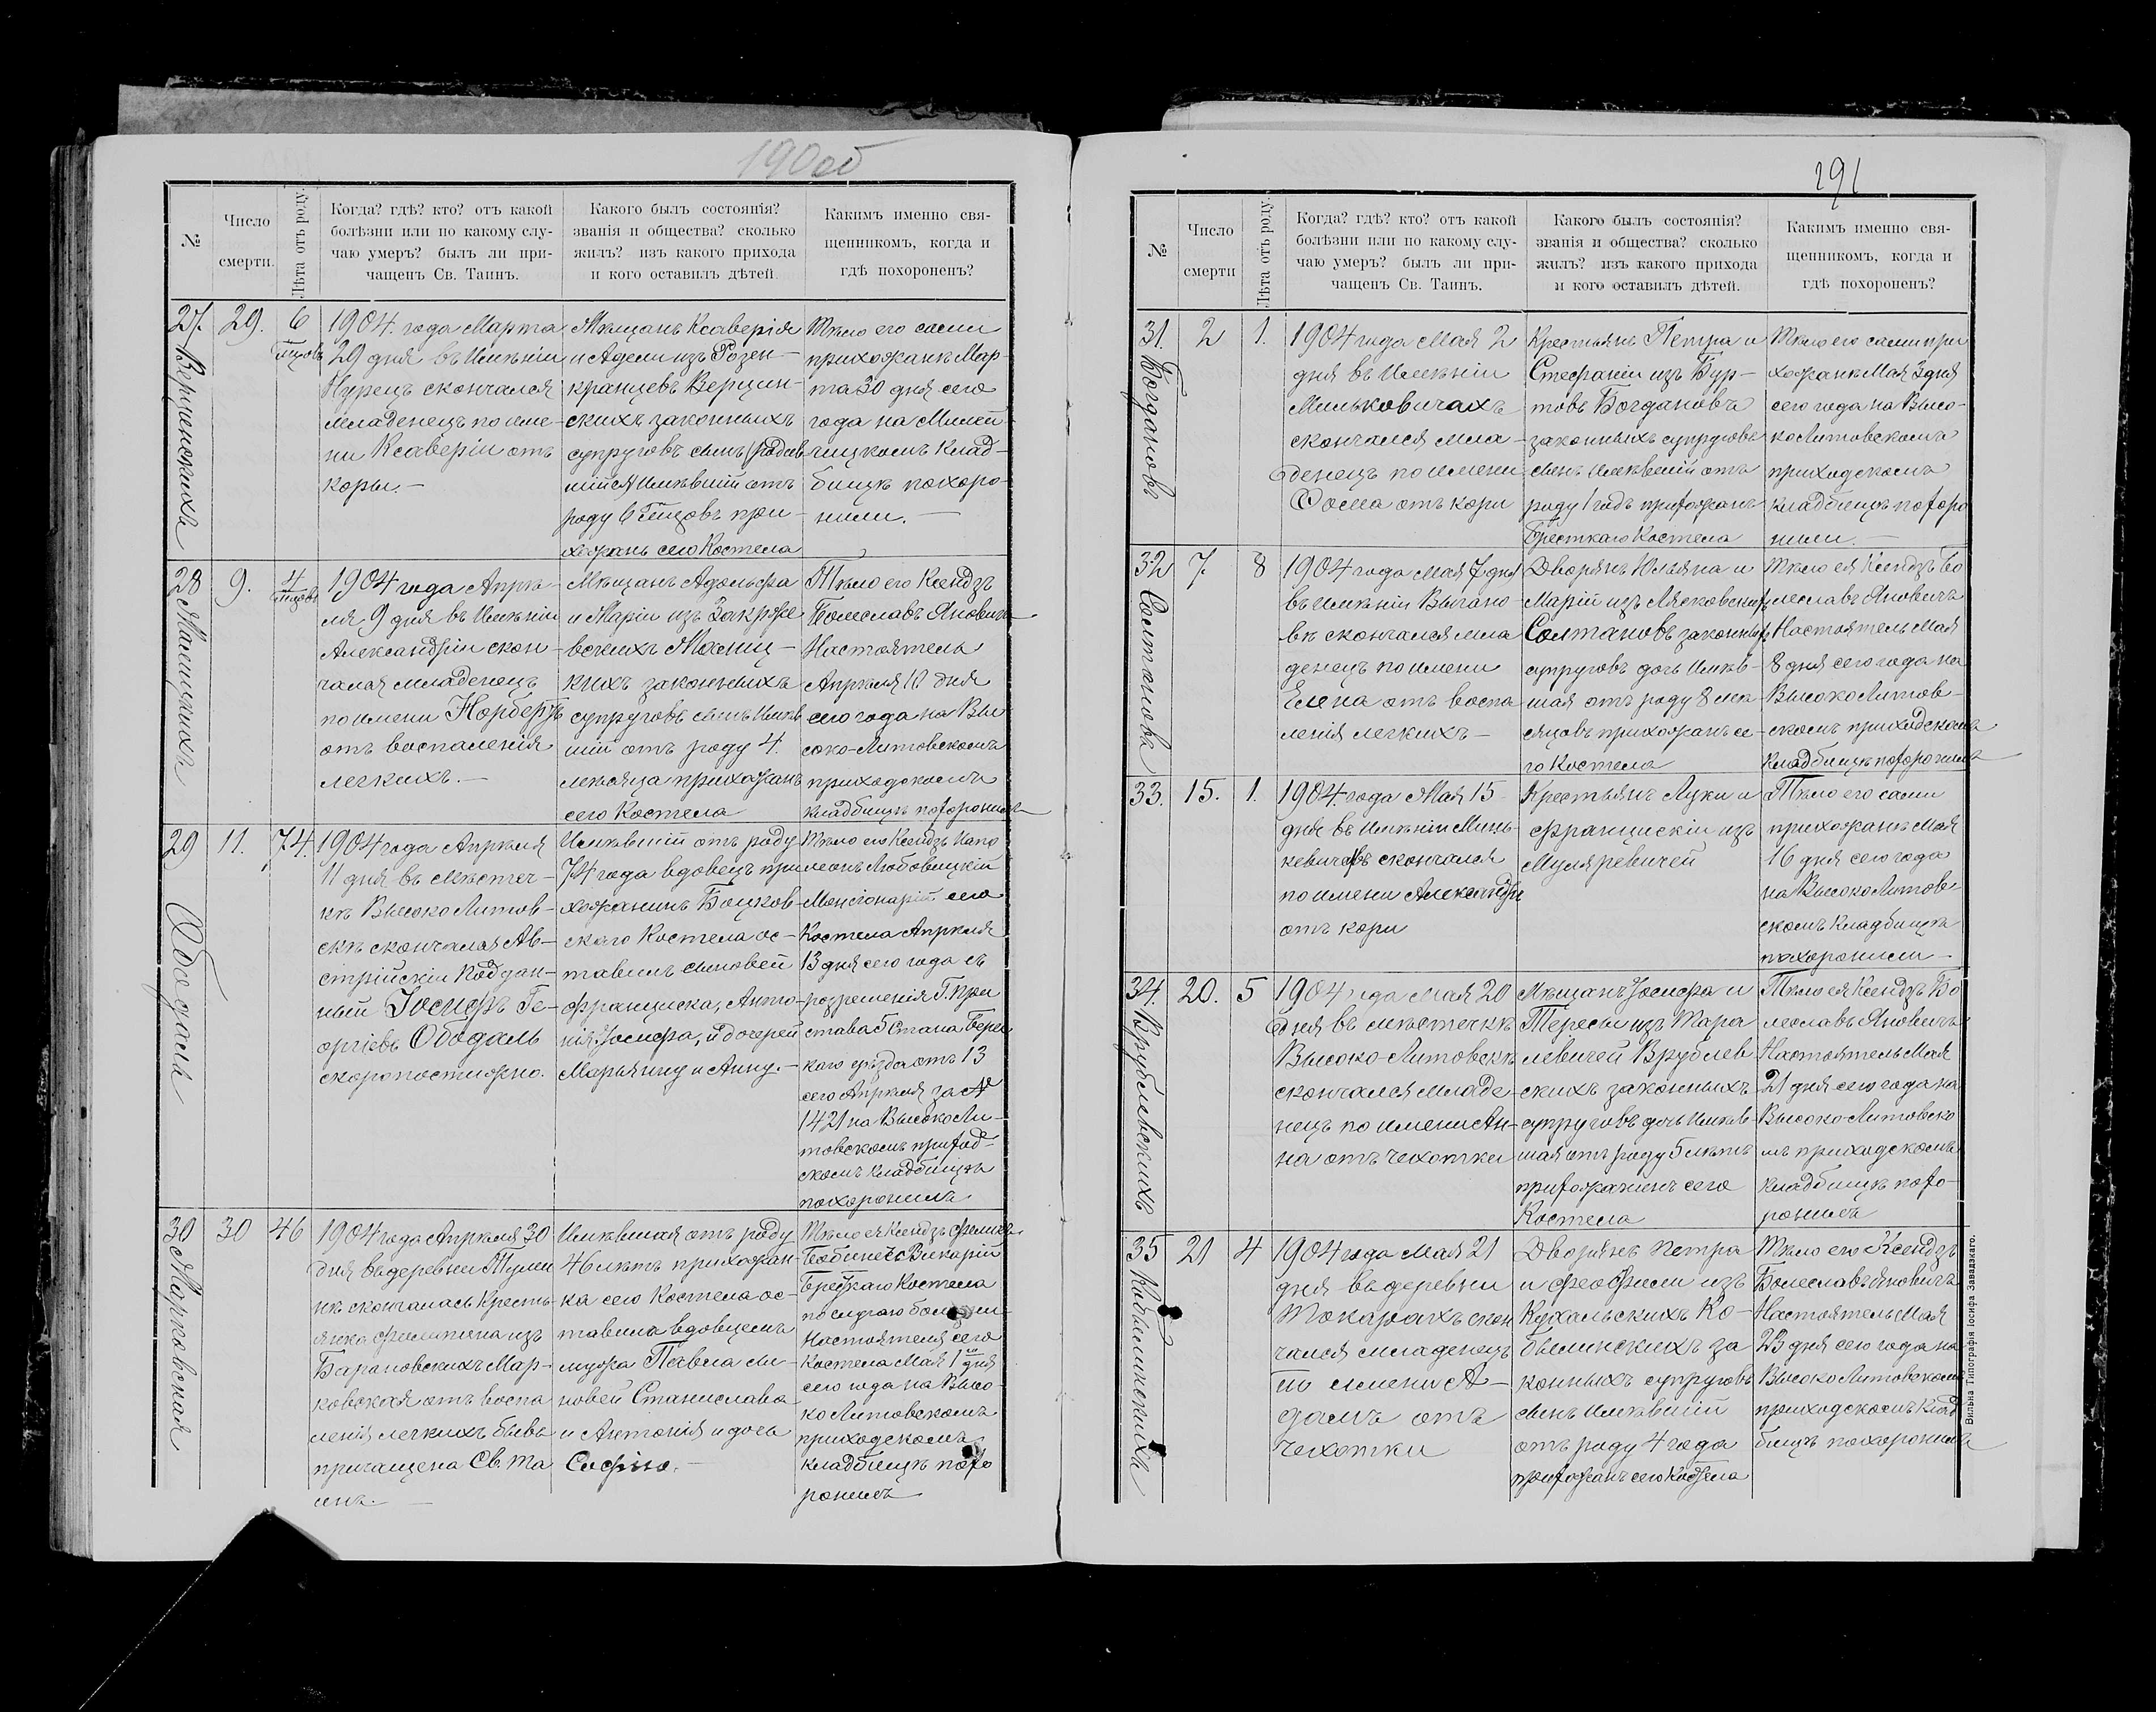 190об
№
Число
смерти.
Лѣта отъ роду.
Когда? гдѣ? кто? отъ какой
болѣзни или по какому слу-
чаю умеръ? былъ ли при-
чащенъ Св. Таинъ.
Какого былъ состоянія?
званія и общества? сколько
жилъ? изъ какого прихода
и кого оставилъ дѣтей.
Какимъ именно свя-
щенникомъ, когда и
гдѣ похороненъ?
27.
29.
6
1904. года Марта
29 дня въ Имѣніи
Нурецъ скончался
младенецъ по име-
ни Ксаверій отъ
коры.-
Мѣщанъ Ксаверія
и Адели изъ Розен-
кранцевъ Верцин-
скихъ законныхъ
супруговъ сынъ
имѣвшій отъ
роду 6 при-
хожанъ сего Костела
Тѣло его сами
прихожанѣ Мар-
та 30 дня сего
года на Милей-
чицкомъ клад-
бищѣ похоро-
нили.-
28
9.
4
1904 года Апрѣ-
ля 9 дня въ Имѣніи
Александріи скон-
чался младенецъ
по имени Норбертъ
отъ воспаленія
легкихъ.-
Мѣщанъ Адольфа
и Маріи изъ Закрже
вскихъ
законныхъ
супруговъ сынъ имѣв
шій отъ роду 4.
месяца прихожанъ
сего Костела
Тѣло его Ксендзъ
Болеславъ Яновичъ
Настоятель
Апрѣля 10 дня
сего года на Вы
соко-Литовскомъ
приходскомъ
кладбищѣ похоронилъ
29
Ободаль
11.
74.
1904 года Апрѣля
11 дня въ мѣстеч-
кѣ Высоко Литов-
скѣ скончался Ав-
стрійскій Поддан-
ный Іосифъ Ге-
оргіевъ Ободаль
скоропостижно.
Имѣвшій отъ роду
74 года вдовецъ при
хожанинъ Боцков-
скаго Костела ос-
тавилъ сыновей
Франциска, Анто-
нія Іосифа, и дочерей
Марьянну и Анну.-
Тѣло его Ксендзъ Напо
леонъ Любовицкій
Мансіонарій сего
Костела Апрѣля
13 дня сего года съ
розрешенія Г. При
става 5 Стана Брест
каго уѣзда отъ 13
сего Апрѣля за №
1421 на Высоко Ли-
товскомъ приход-
скомъ кладбищѣ
похоронилъ
30
Марковская
30
46
1904 года Апрѣля 30
дня въ деревни
скончалась Кресть-
янка изъ
Барановскихъ Мар-
ковская отъ воспа
ленія легкихъ бывъ
причащена Св. Та
инъ.-
Имѣвшая отъ роду
46 лѣтъ прихожан-
ка сего Костела ос-
тавила вдовцемъ
мужа Павла сы-
новей Станислава
и Антонія и дочь
Софію.-
Тѣло ея Ксендзъ
Викарій
Брестскаго Костела
по случаю
Настоятеля сего
Костела Мая 1 дня
сего года на Высо-
ко Литовскомъ
приходскомъ
кладбищѣ похо
ронилъ
291
№
Число
смерти
Лѣта отъ роду.
Когда? гдѣ? кто? отъ какой
болѣзни или по какому слу-
чаю умеръ? былъ ли при-
чащенъ Св. Таинъ.
Какого былъ состоянія?
званія и общества? сколько
жилъ? изъ какого прихода
и кого оставилъ дѣтей.
Какимъ именно свя-
щенникомъ, когда и
гдѣ похороненъ?
31.
Богдановъ
2
1.
1904 года Мая 2
дня въ Имѣніи
Мильковичахъ
скончался мла-
денецъ по имени
Фома отъ кори
Крестьянъ Петра и
Стефаніи изъ Бур-
товъ Богдановъ
законныхъ супруговъ
сынъ имѣвшій отъ
роду 1 годъ прихожанъ
Брестскаго Костела
Тѣло его сами при
хожанѣ Мая 3 дня
сего года на Высо-
ко Литовскомъ
приходскомъ
кладбищѣ похоро
нили.-
32
Солтанова
7.
8
1904 года Мая 7 дня
въ имѣніи Вычано-
вѣ скончался мла
денецъ по имени
Елена отъ воспа
ленія легкихъ-
Дворянъ Юльяна и
Маріи изъ Лясковскихъ
Солтановъ законныхъ
супруговъ дочь имѣв-
шая отъ роду 8 ме
сяцовъ прихожанъ се-
го Костела
Тѣло ея Ксендзъ Бо
леславъ Яновичъ
Настоятель Мая
8 дня сего года на
Высоко Литов-
скомъ приходскомъ
кладбищѣ похоронилъ
33.
15.
1.
1904. года Мая 15
дня въ имѣніи Миль-
кевичахъ скончался
по имени Александръ
отъ кори
Крестьянъ Луки и
Францискіи изъ
Муляревичей
Тѣло его сами
прихожанѣ Мая
16 дня сего года
на Высоко Литов-
скомъ кладбищѣ
похоронили-
34.
Врублевскихъ
20.
5
1904 года Мая 20
дня въ мѣстечкѣ
Высоко-Литовскѣ
скончался младе-
нецъ по имени Ан-
на отъ чехотки
Мѣщанъ Іосифа и
Тересы изъ Тара
левичей Врублев
скихъ законныхъ
супруговъ дочь имѣв-
шая отъ роду 5 лѣтъ
прихожанинъ сего
Костела
Тѣло ея Ксендзъ Бо
леславъ Яновичъ
Настоятель Мая
21 дня сего года на
Высоко-Литовско
мъ приходскомъ
кладбищѣ похо-
ронилъ
35
Кобылинскихъ
21
4
1904 года Мая 21
дня въ деревни
Токарахъ скон
чался младенецъ
по имени А-
дамъ отъ
чехотки
Дворянъ Петра
и Феофили изъ
Кухальскихъ Ко-
былинскихъ за
конныхъ супруговъ
сынъ имѣвшій
отъ роду 4 года
прихожанъ сего Костела
Тѣло его Ксендзъ
Болеславъ Яновичъ
Настоятель Мая
23 дня сего года на
Высоко Литовскомъ
приходскомъ клад
бищѣ похоронилъ
Вильна Типографія Іосифа Завадзкаго.